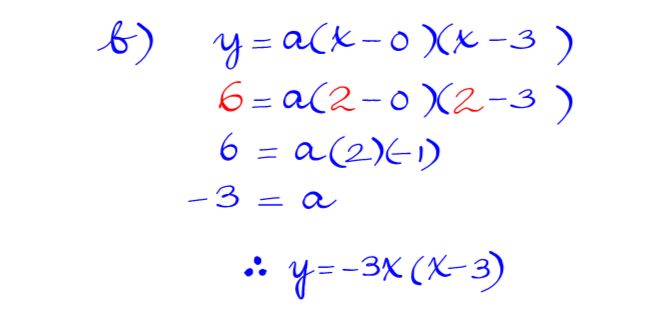 b) y = a(x - 0)(x - 3)
6 = a(2 - 0)(2 - 3)
6 = a(2)(-1)
-3 = a
∴ y = -3x(x - 3)